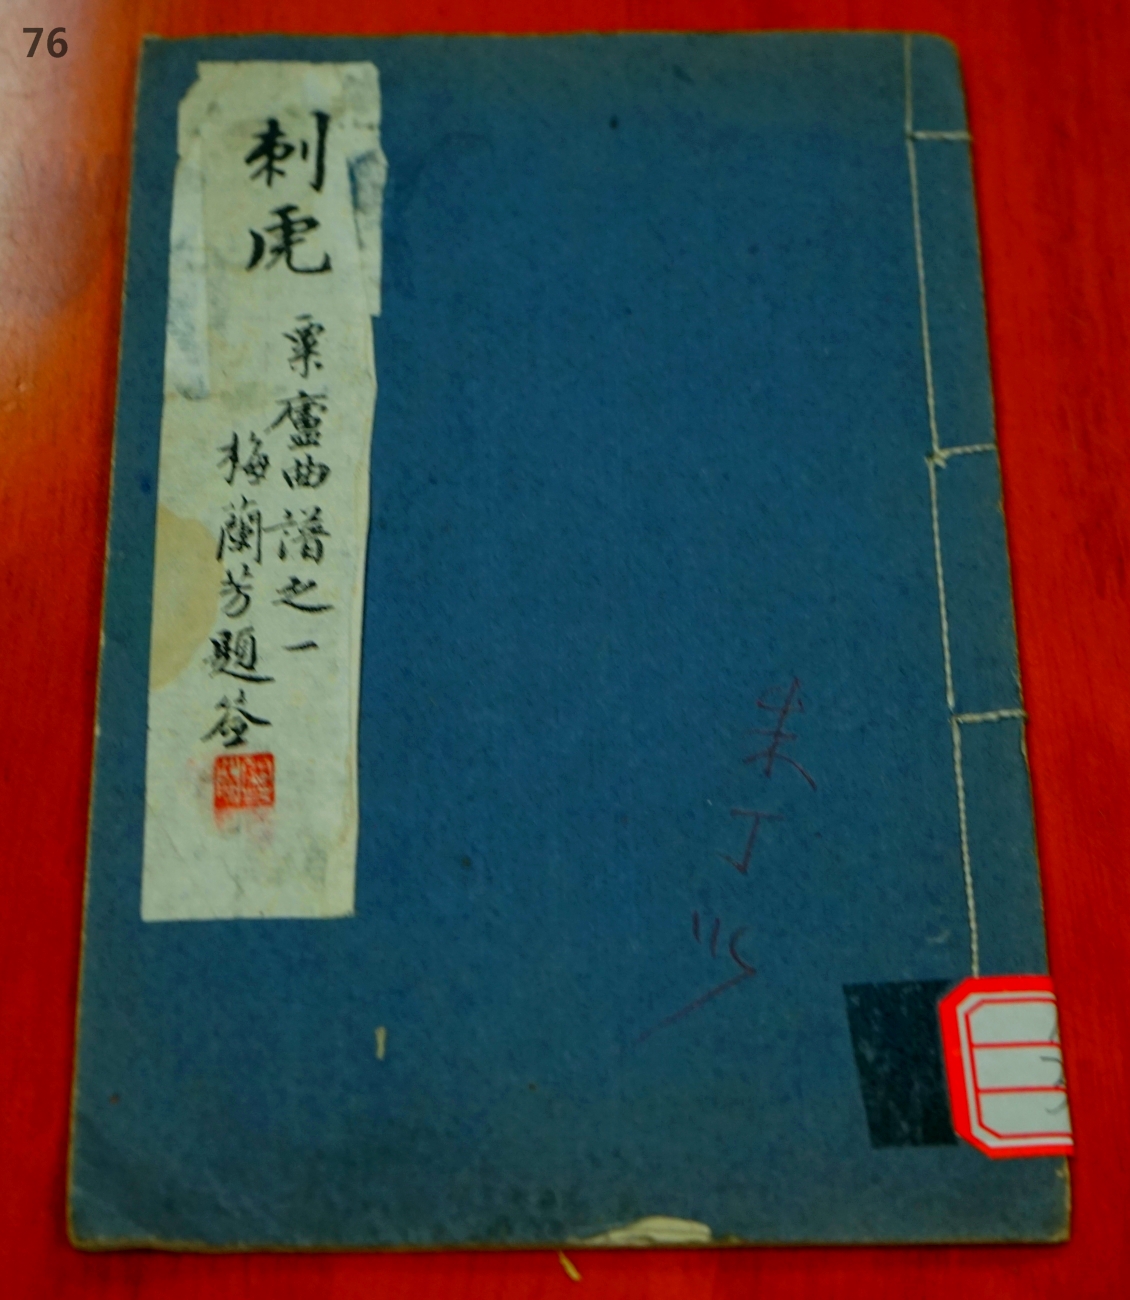 76
刺虎
粟廬曲譜之一
梅蘭芳題簽